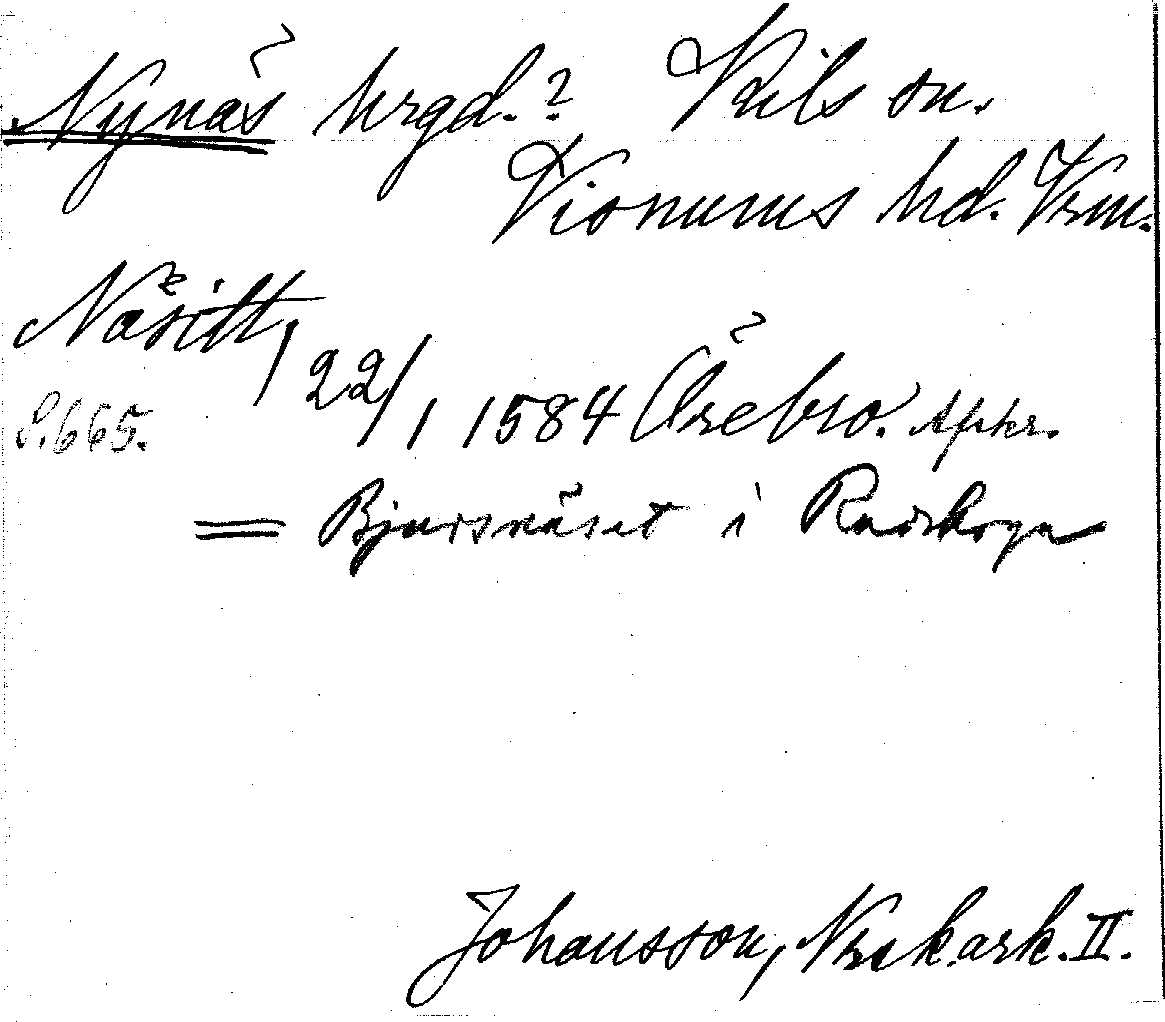 Nynäs hrgd.? Kils sn.
Visnums hd. Vrm.
Näsitt,
22/1 1584 Örebro. Afskr.
S. 665.
= Bjursnäset i Rudskoga
Johansson, Nrsk. ark. II.